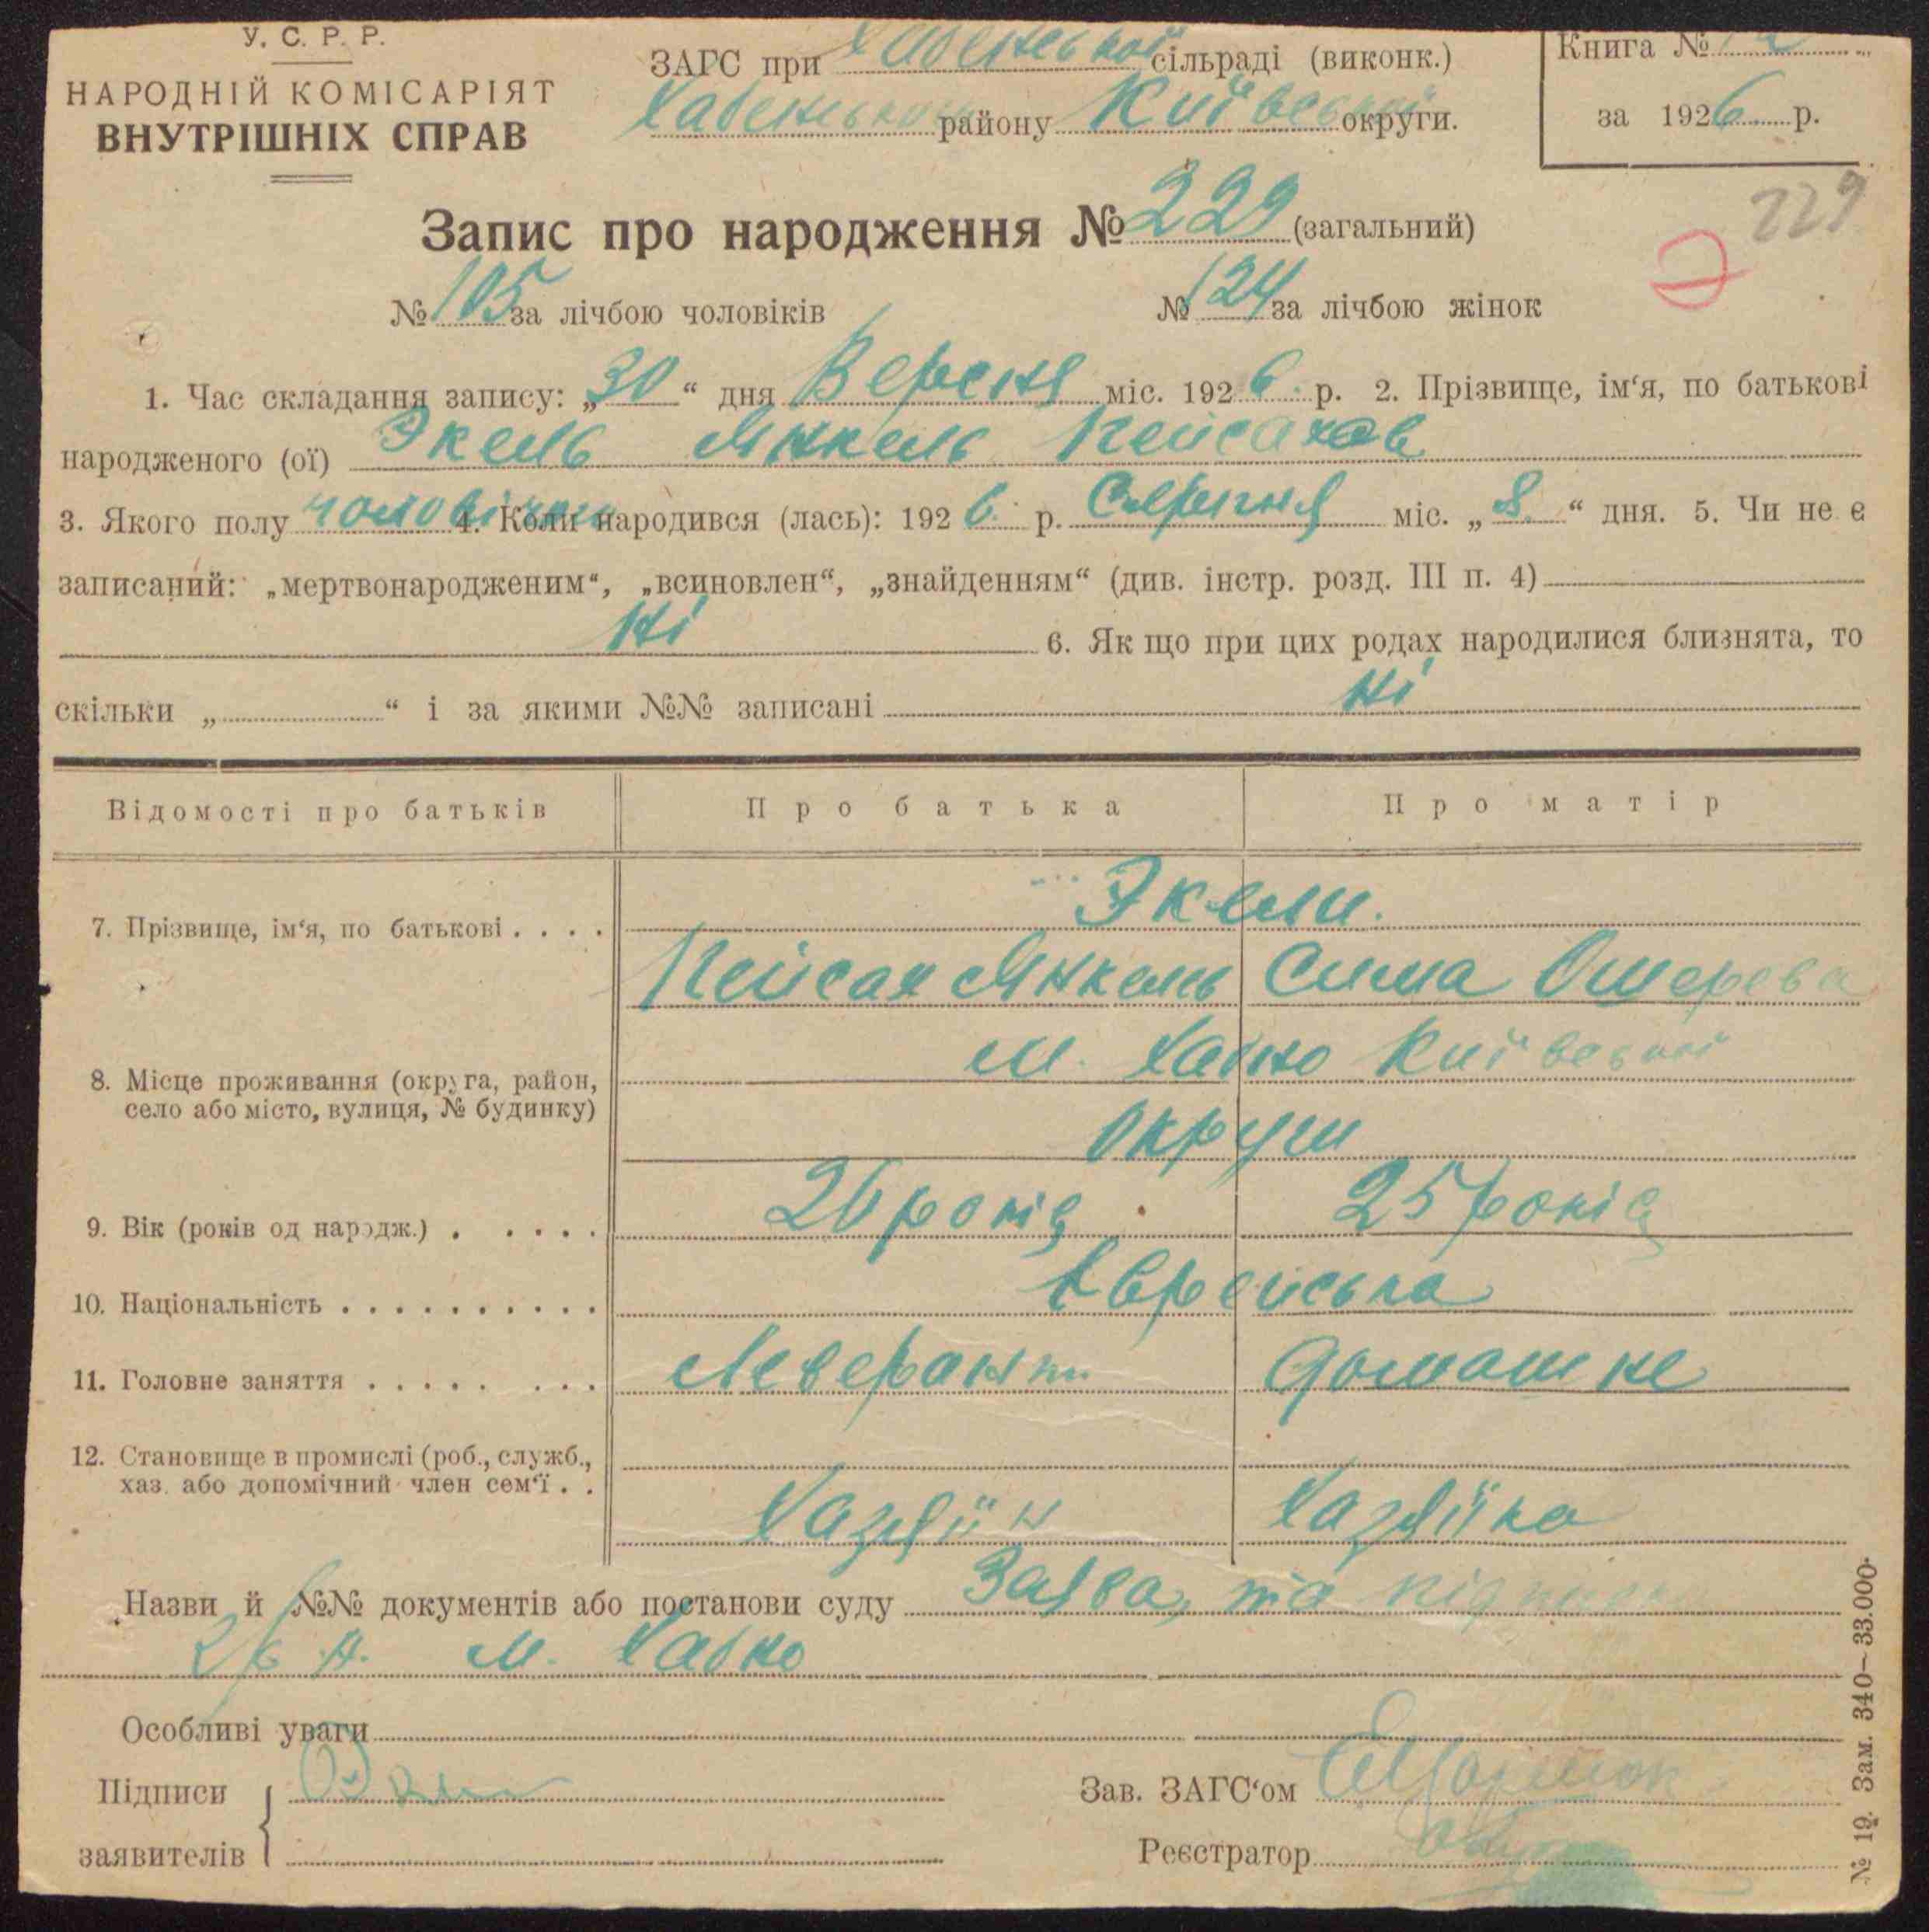 У. С. Р. Р.
НАРОДНІЙ КОМІСАРІЯТ
ВНУТРІШНІХ СПРАВ
ЗАГС при Хабенської сільраді (виконк.)
Хабенського району Київської округи.
Книга №
за 1926 р.
Запис про народження № 229 (загальний)
229
Э
№ 105 за лічбою чоловіків № 124 за лічбою жінок
1. Час складання запису: „30“ дня Вересня міс. 1926 р. 2. Прізвище, ім‘я, по батькові
народженого (ої) Экель Янкель Пейсахов
3. Якого полу чоловічий 4. Коли народився (лась): 1926 р. Серпня міс. „8“ дня. 5. Чи не є
записаний: „мертвонародженим“, „всиновлен“, „знайденням“ (див. інстр. розд. III п. 4)
Ні 6. Як що при цих родах народилися близнята, то
скільки „ “ і за якими №№ записані Ні
Відомості про батьків Про батька Про матір
7. Прізвище, ім‘я, по батькові . . . . Экели.
Пейсах Янкель Сима Ошерева
8. Місце проживання (округа, район, м. Хабно Київської
село або місто, вулиця, № будинку) округи
9. Вік (років од народж.) . . . . . 26 років 25 років
10. Національність . . . . . . . . . . Єврейська
11. Головне заняття . . . . . . . . Леверант Домашне
12. Становище в промислі (роб., служб.,
хаз. або допомічний член сем‘ї . . Хазяїн Хазяїка
Назви й №№ документів або постанови суду Заява, та підписи
м. Хабно
Особливі уваги
Підписи
заявителів
Зав. ЗАГС‘ом
Реєстратор
№ 19. Зам. 340—33.000.